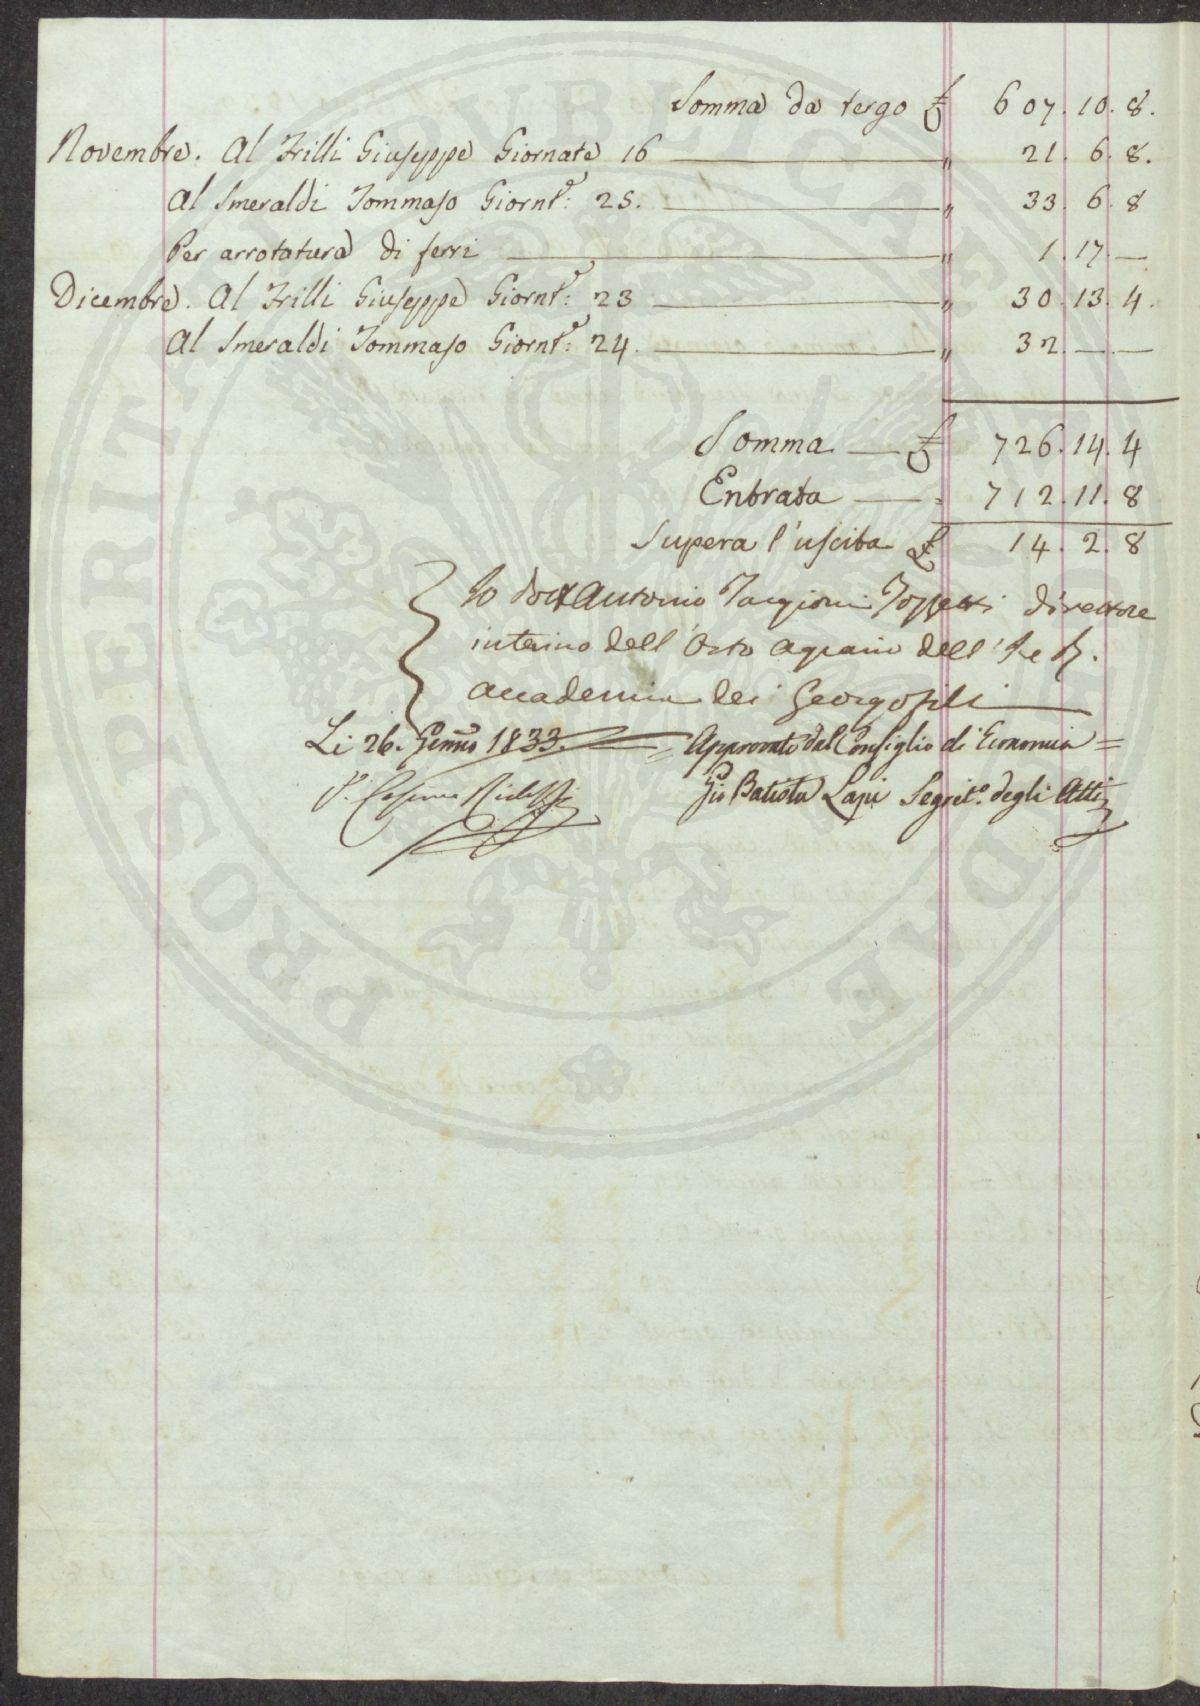 Somma da tergo £ 607. 10. 8.
Novembre. Al Frilli Giuseppe Giornate 16 — " 21. 6. 8.
Al Smeraldi Tommaso Giornt.e: 25. — " 33. 6. 8
Per arrotatura di ferri — " 1. 17. —
Dicembre. Al Frilli Giuseppe Giornt.e: 23 — " 30. 13. 4.
Al Smeraldi Tommaso Giornt.e: 24. — " 32. — —
Somma — £ 726. 14. 4
Entrata — 712. 11. 8
Supera l'uscita £ 14. 2. 8
Io Dott Antonio Targioni Tozzetti direttore
interino dell'Orto agrario dell'I e R.
accademia dei Georgofili
Li 26. Genn.o 1833. = Approvato dal Consiglio di Economia =
V. Cosimo Ridolfi
Gio Batista Lapi Segret.o degli Atti
PROSPERITATI PUBLICAE